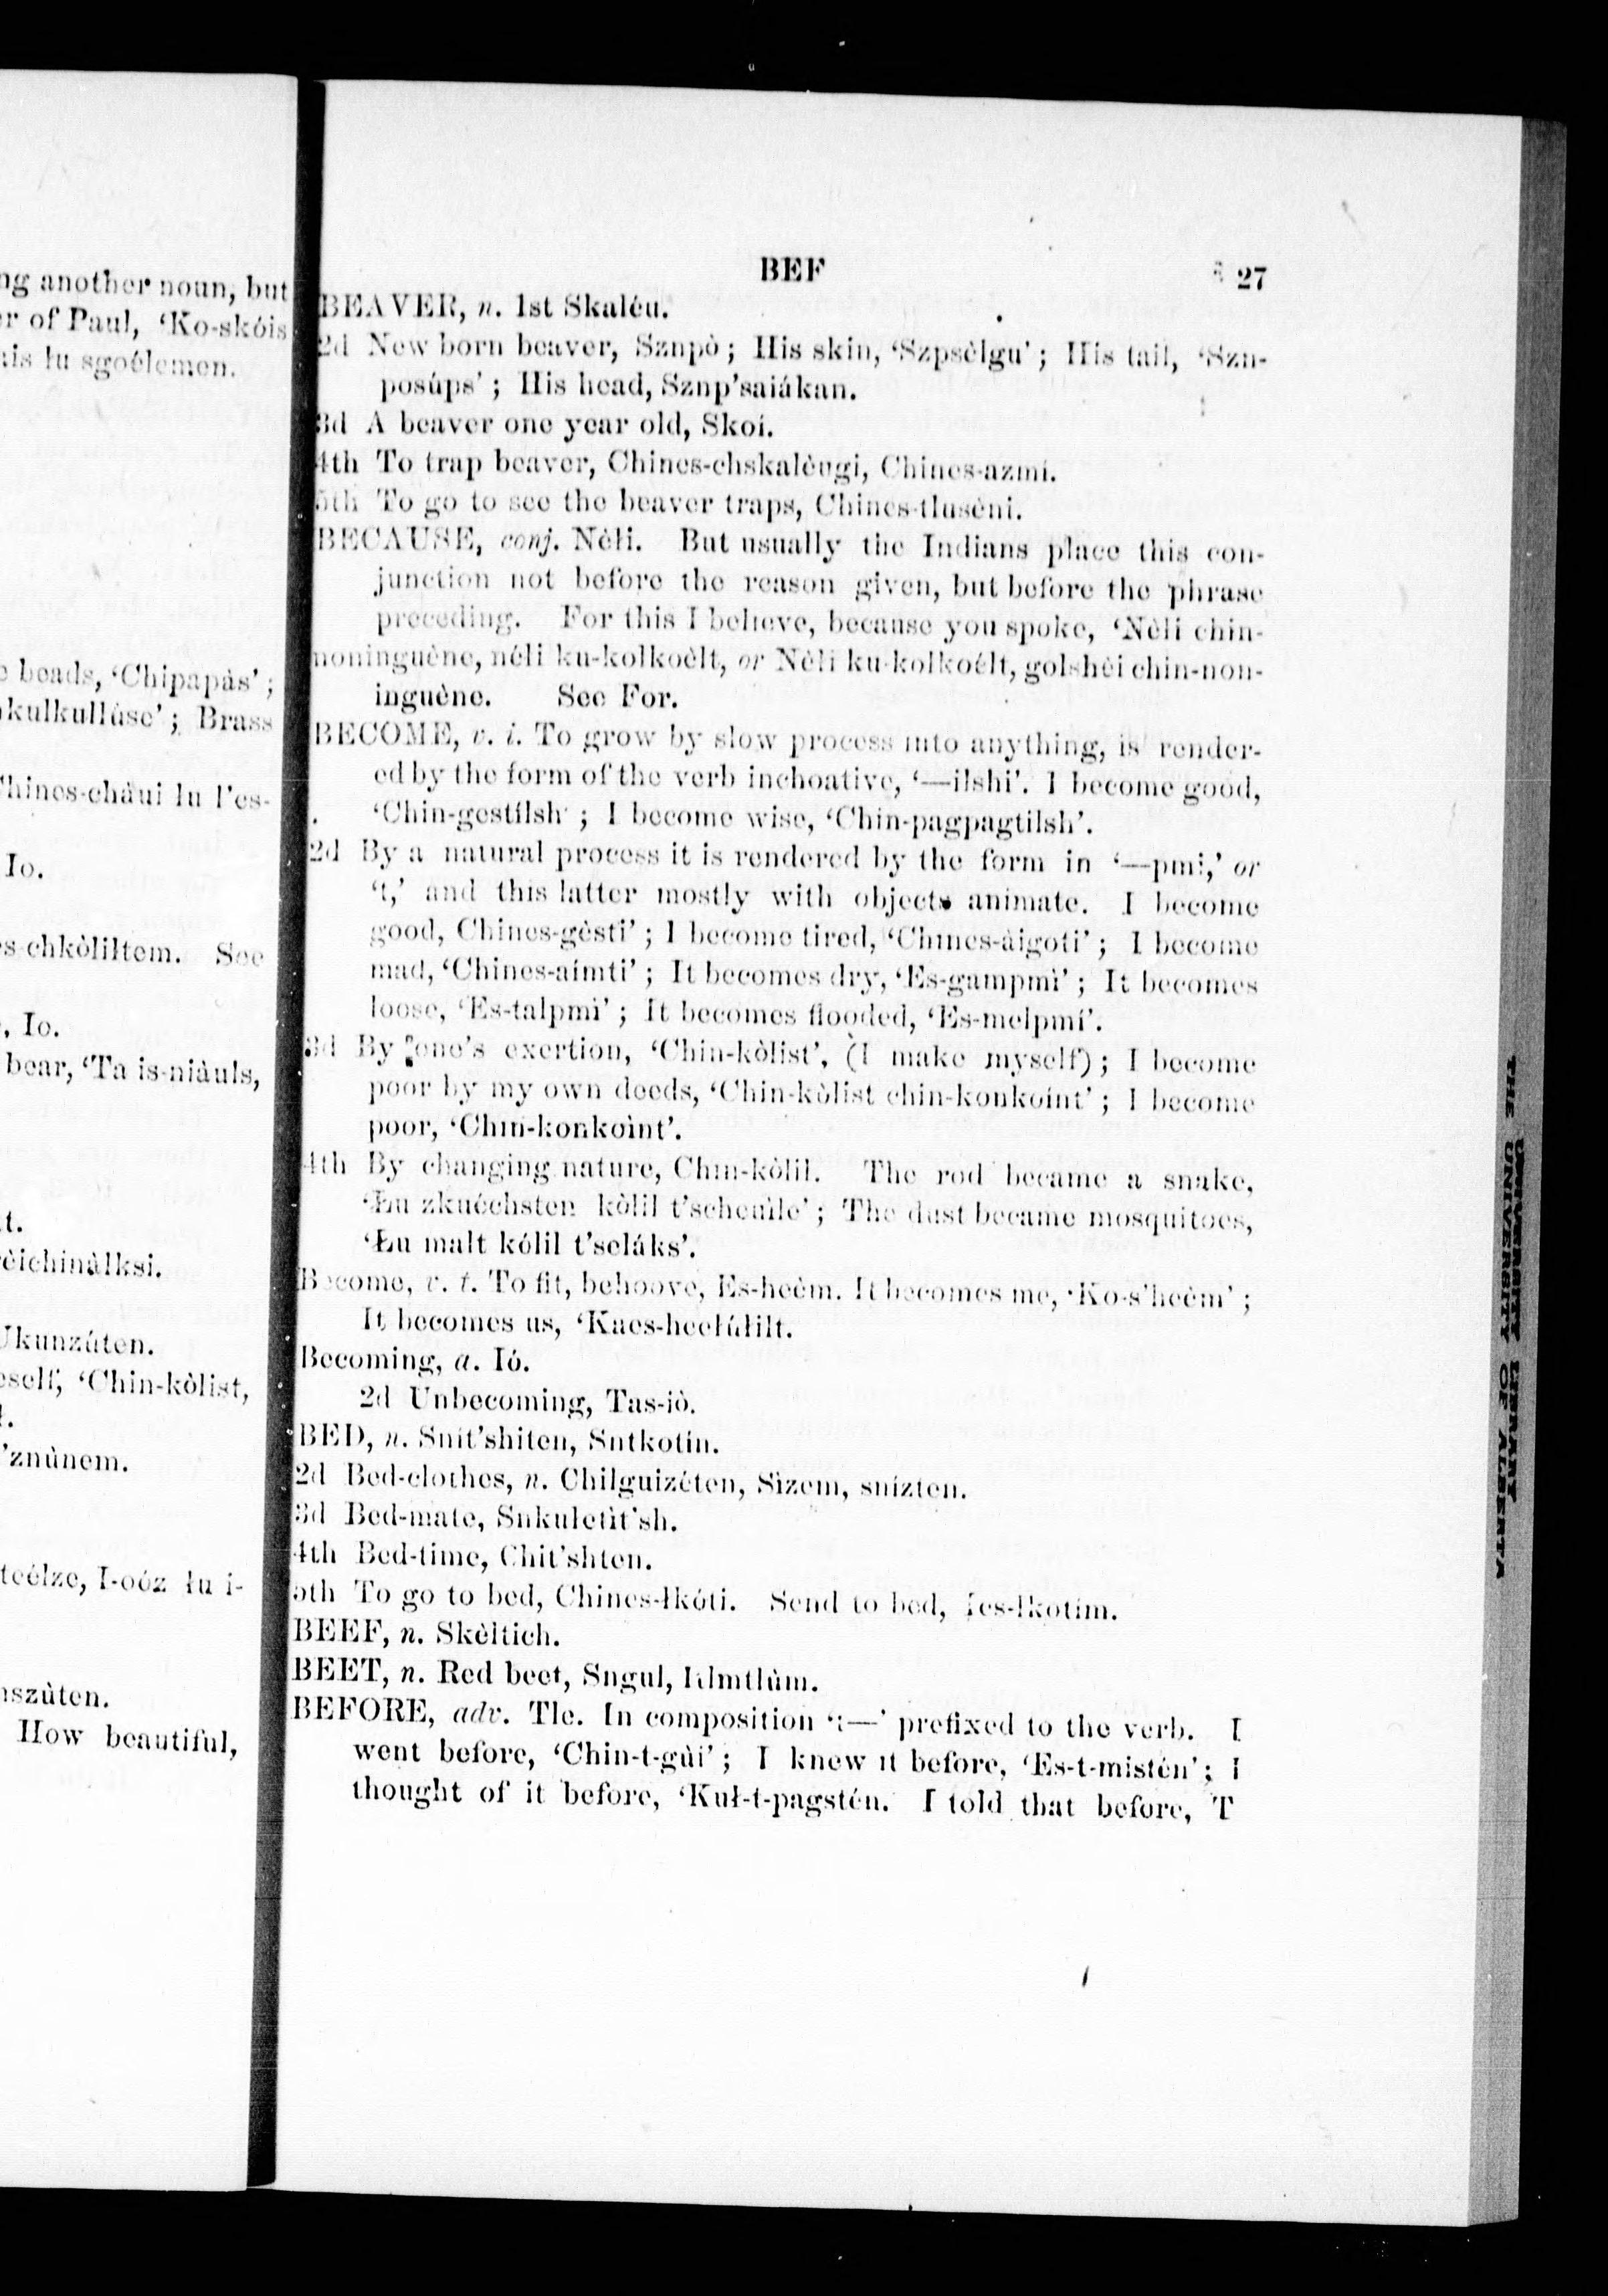 ng another noun, but
er of Paul, ‘Ko-skóis
ais łu sgoélemen.
e beads, ‘Chipapàs’;
kulkullúse’; Brass
Chines-chàui lu l'es-
Io.
es-chkòliłtem. See
, Io.
bear, ‘Ta is-niàuls,
t.
èichinàlksi.
Ukunzúten.
eself, ‘Chin-kòlist,
’znùnem.
teélze, I-oóz łu i-
nszùten.
How beautiful,
BEF 27
BEAVER, n. 1st Skaléu.
2d New born beaver, Sznpò; His skin, ‘Szpsèlgu’; His tail, ‘Szn-
posúps’; His head, Sznp’saiákan.
3d A beaver one year old, Skoí.
4th To trap beaver, Chines-chskalèugi, Chines-azmí.
5th To go to see the beaver traps, Chines-tlusèni.
BECAUSE, conj. Nèłi. But usually the Indians place this con-
junction not before the reason given, but before the phrase
preceding. For this I believe, because you spoke, ‘Nèli chin-
noninguène, néli ku-kolkoèlt, or Nèli ku-kolkoélt, golshèi chin-non-
inguène. See For.
BECOME, v. i. To grow by slow process into anything, is render-
ed by the form of the verb inchoative, ‘—ilshi’. I become good,
‘Chin-gestílsh’; I become wise, ‘Chin-pagpagtilsh’.
2d By a natural process it is rendered by the form in ‘—pmi,’ or
‘t,’ and this latter mostly with objects animate. I become
good, Chines-gèsti’; I become tired, ‘Chines-àigoti’; I become
mad, ‘Chines-aímti’; It becomes dry, ‘Es-gampmì’; It becomes
loose, ‘Es-talpmì’; It becomes flooded, ‘Es-melpmí’.
3d By one’s exertion, ‘Chin-kòlist’, (I make myself); I become
poor by my own deeds, ‘Chin-kòlist chin-konkoínt’; I become
poor, ‘Chin-konkoìnt’.
4th By changing nature, Chin-kòlil. The rod became a snake,
‘Łu zkuéchsten kòlil t’scheuìle’; The dust became mosquitoes,
‘Łu malt kólil t’seláks’.
Become, v. t. To fit, behoove, Es-heèm. It becomes me, ‘Ko-s’heèm’;
It becomes us, ‘Kaes-heełúłilt.
Becoming, a. Ió.
2d Unbecoming, Tas-iò.
BED, n. Snít’shiten, Sntkotín.
2d Bed-clothes, n. Chilguizéten, Sìzem, snízten.
3d Bed-mate, Snkułetìt’sh.
4th Bed-time, Chit’shten.
5th To go to bed, Chines-łkóti. Send to bed, Ies-łkotím.
BEEF, n. Skèltich.
BEET, n. Red beet, Sngul,
BEFORE, adv. Tle. In composition ‘t—’ prefixed to the verb. I
went before, ‘Chin-t-gùi’; I knew it before, ‘Es-t-mistén’; I
thought of it before, ‘Kuł-t-pagstén. I told that before, T
THE UNIVERSITY OF ALBERTA